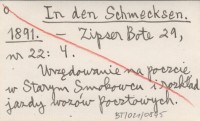 In den Schmecksen.
1891. – Zipser Bote 29,
nr 22: 4.
Urzędowanie na poczcie
w Starym Smokowcu i rozkład
jazdy wozów pocztowych.